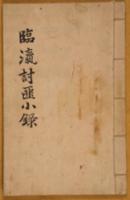 臨瀛討匪小錄